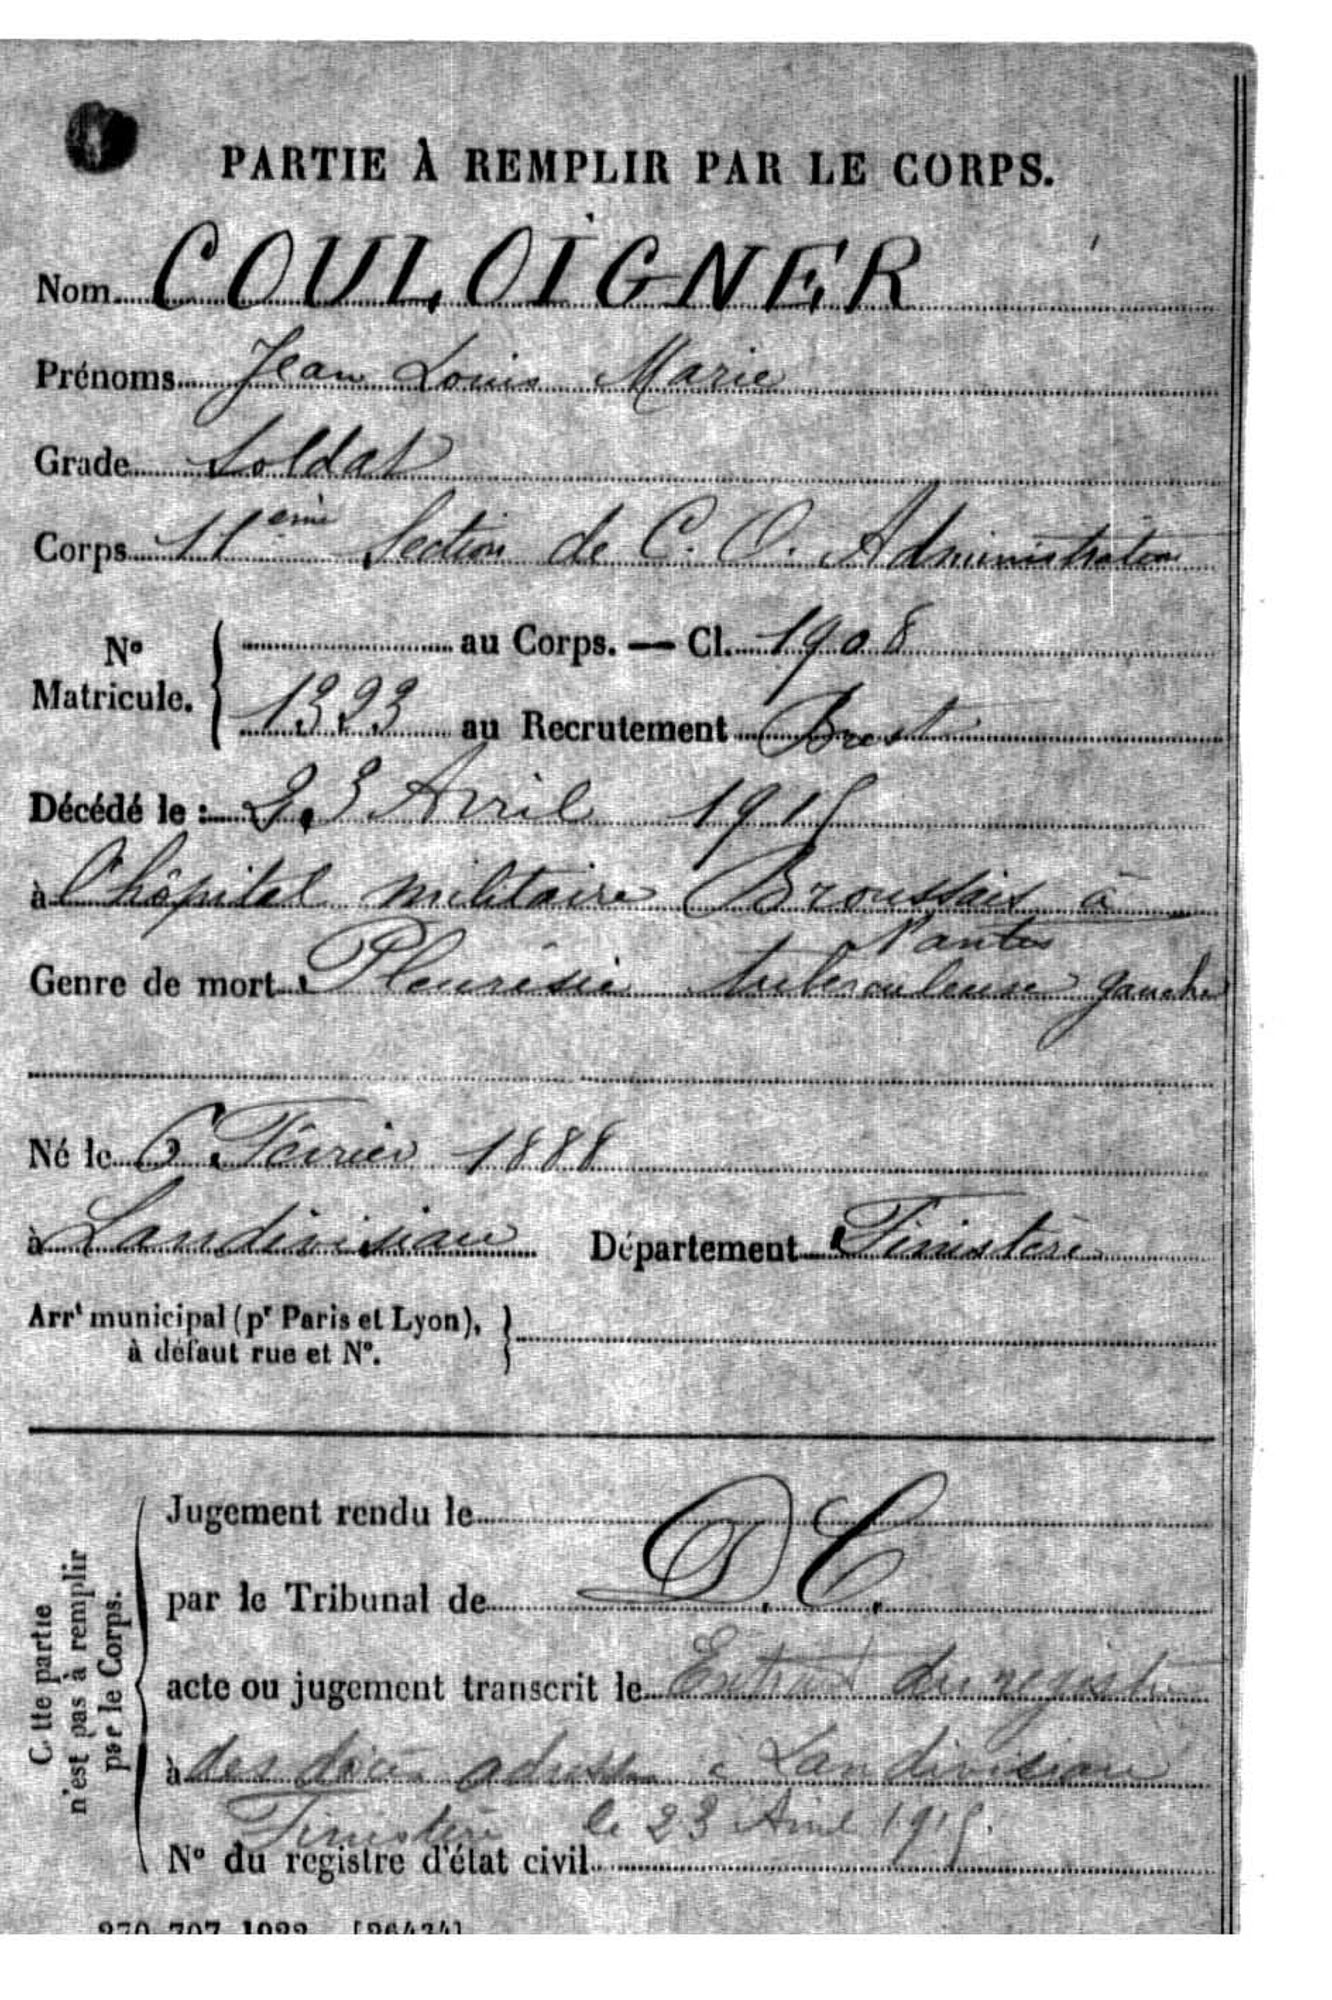 PARTIE À REMPLIR PAR LE CORPS.
Nom COULOIGNER
Prénoms Jean Louis Marie
Grade Soldat
Corps 11ème Section de C. O. Administration
Nº Matricule. { au Corps. — Cl. 1908
1323 au Recrutement Brest
Décédé le : 23 Avril 1915
à l'hôpital militaire Broussais à
Nantes
Genre de mort Pleurésie tuberculeuse gauche
Né le 6 Février 1888
à Landivisiau Département Finistère
Arrt municipal (pr Paris et Lyon),
à défaut rue et Nº.
Cette partie
n'est pas à remplir
par le Corps.
Jugement rendu le
par le Tribunal de D. C.
acte ou jugement transcrit le Extrait du registre
à des décès adressé à Landivisiau
Finistère le 23 Avril 1915.
Nº du registre d'état civil
270-707-1922. [26434]